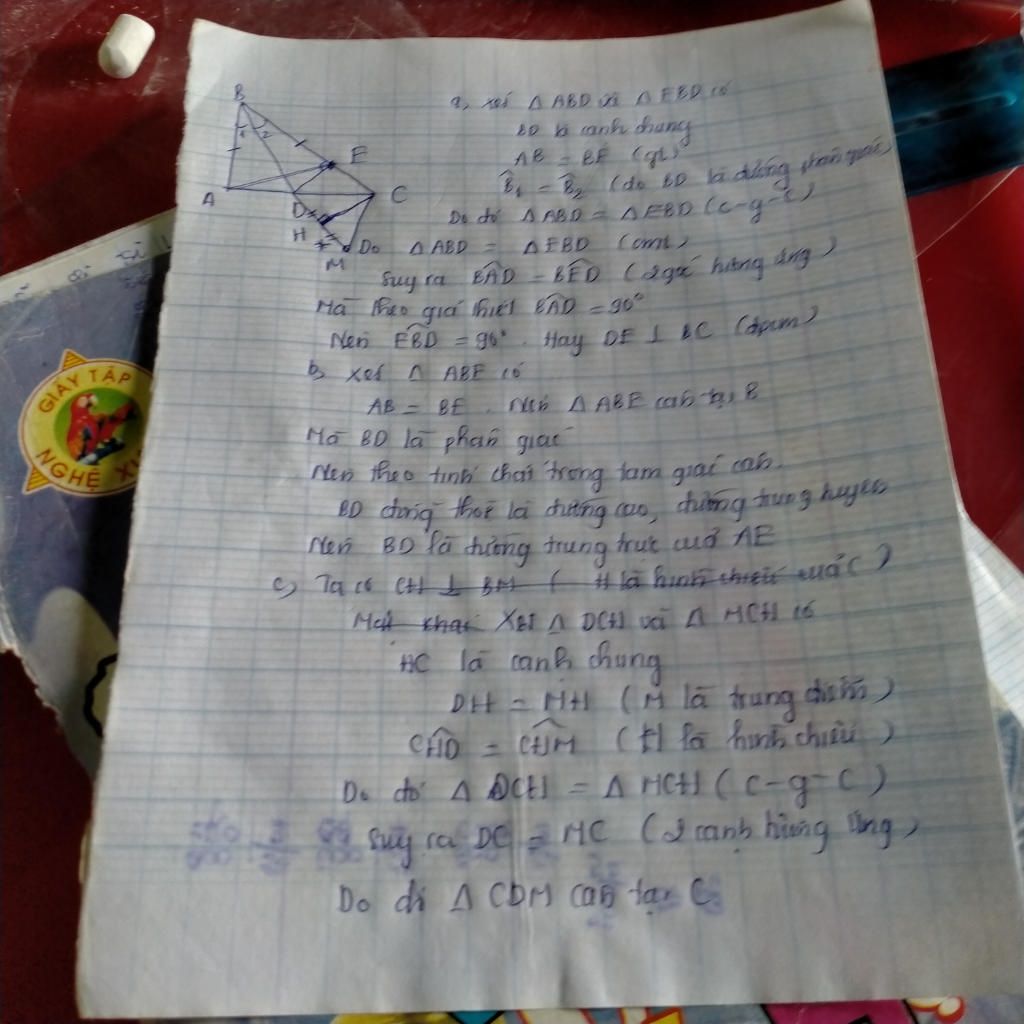 B
1 2
E
A
C
D
H
M
a, xét Δ ABD và Δ EBD có
BD là cạnh chung
AB = BE (gt)
B̂₁ = B̂₂ (do BD là đường phân giác)
Do đó Δ ABD = Δ EBD (c-g-c)
Do Δ ABD = Δ EBD (cmt)
Suy ra BÂD = BÊD (2 góc tương ứng)
Mà theo giả thiết BÂD = 90°
Nên EB̂D = 90°. Hay DE ⊥ BC (đpcm)
b, xét Δ ABE có
AB = BE. Nên Δ ABE cân tại B
Mà BD là phân giác
Nên theo tính chất trong tam giác cân.
BD đồng thời là đường cao, đường trung tuyến
Nên BD là đường trung trực của AE
c, Ta có CH ⊥ BM ( H là hình chiếu của C )
Mặt khác Xét Δ DCH và Δ MCH có
HC là cạnh chung
DH = MH ( M là trung điểm )
CĤD = CĤM ( H là hình chiếu )
Do đó Δ DCH = Δ MCH ( c-g-c )
Suy ra DC = MC ( 2 cạnh tương ứng )
Do đó Δ CDM cân tại C
GIẤY TẬP
NGHỆ